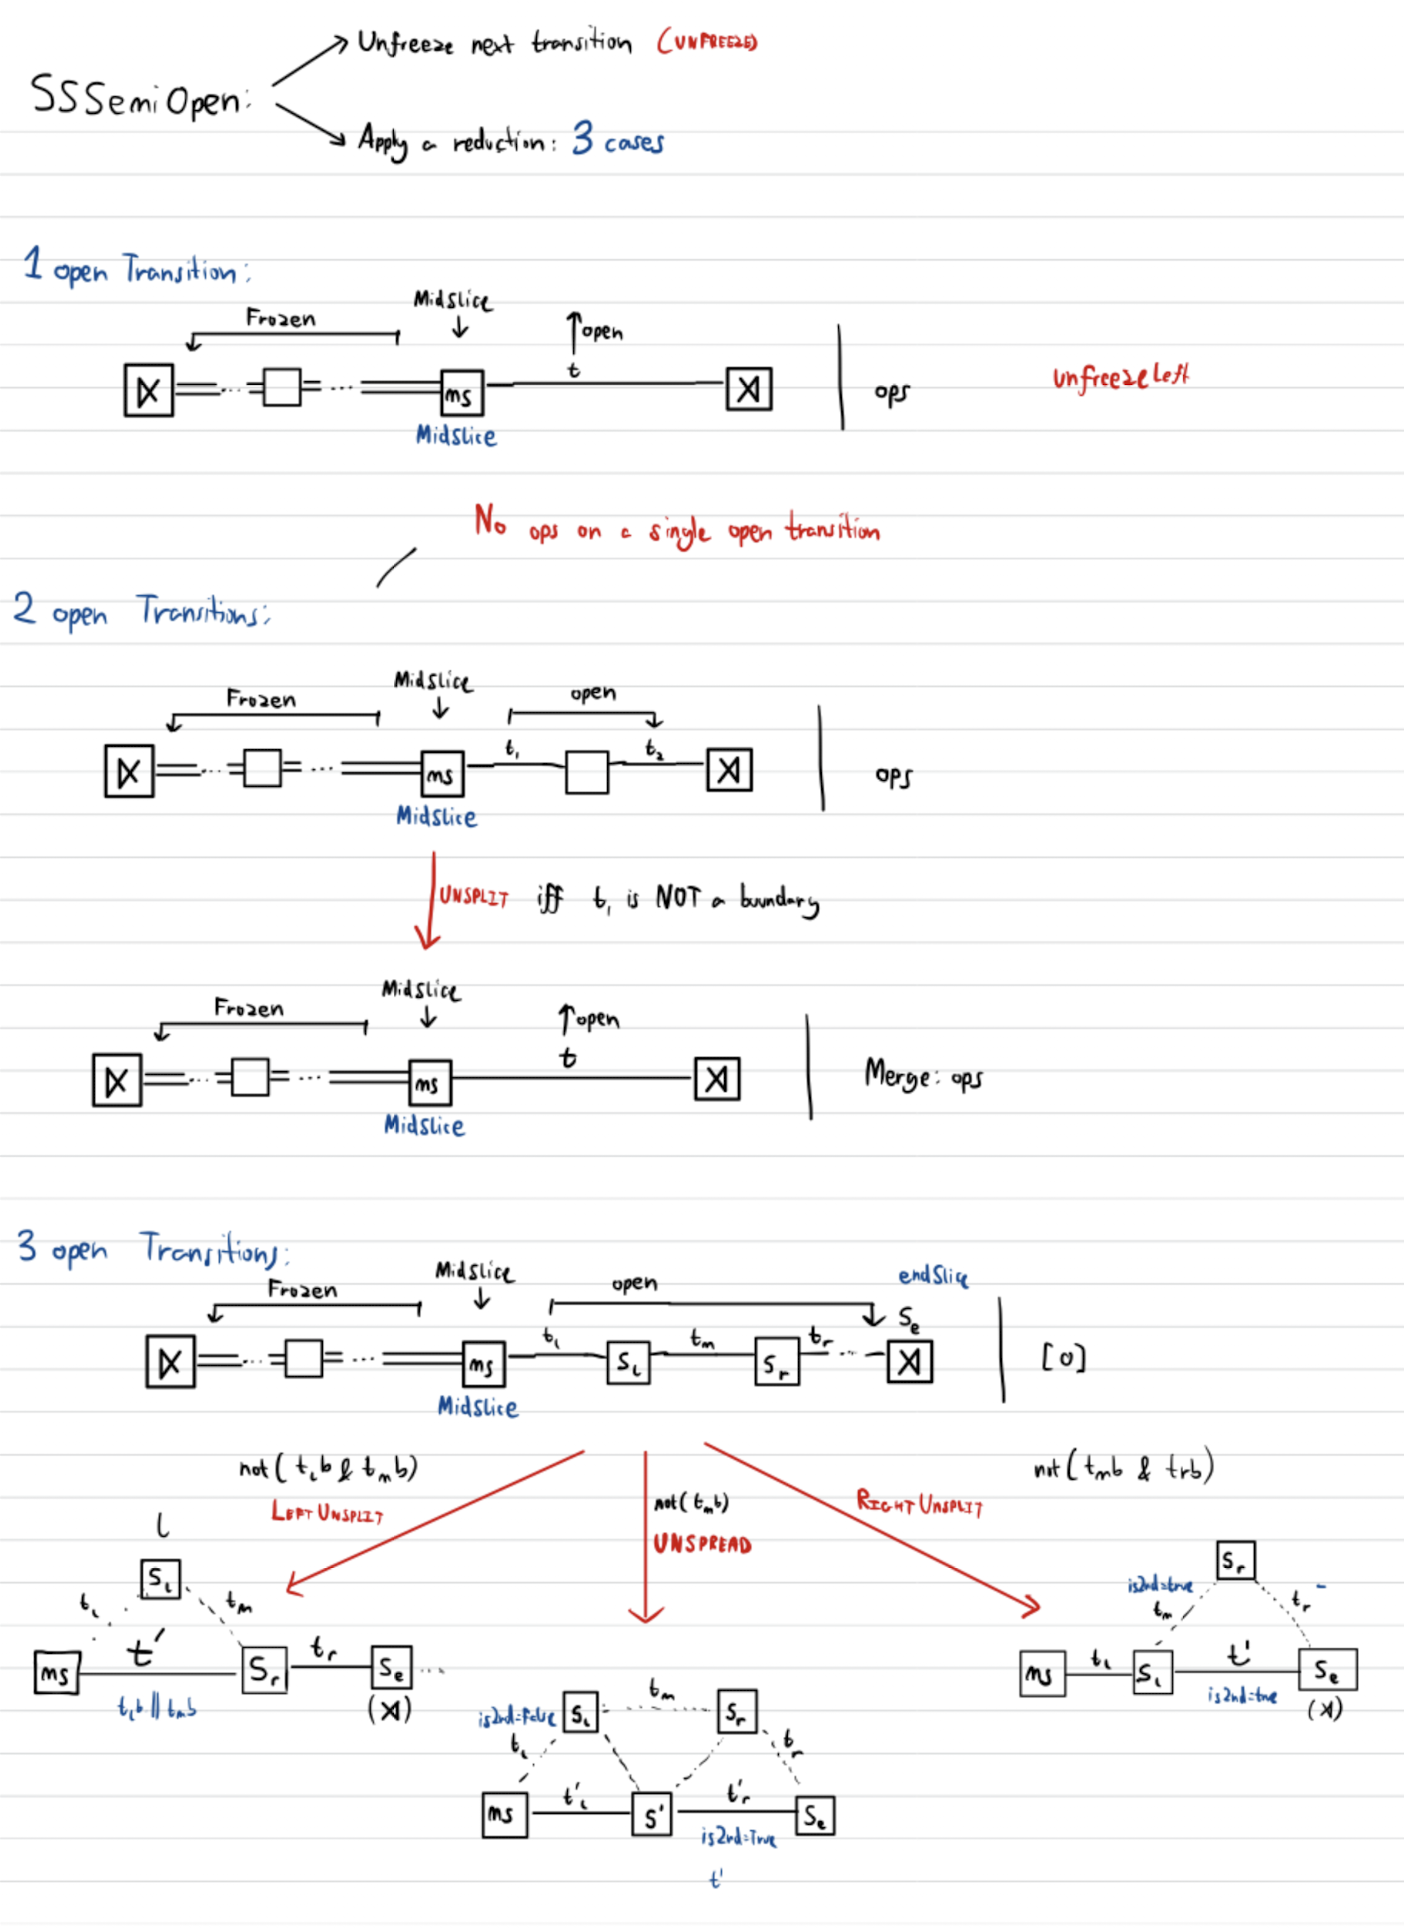 Unfreeze next transition (UNFREEZE)
SSSemiOpen:
Apply a reduction: 3 cases
1 open Transition:
Frozen Midslice open
t
ms
ops
unfreezeLeft
Midslice
No ops on a single open transition
2 open Transitions:
Frozen Midslice open
t₁ t₂
ms
ops
Midslice
UNSPLIT iff t₁ is NOT a boundary
Frozen Midslice open
t
ms
Merge: ops
Midslice
3 open Transitions:
Frozen Midslice open endSlice
Se
tl tm tr
ms Sl Sr
[o]
Midslice
not(tlb & tmb)
LEFT UNSPLIT
not(tmb)
UNSPREAD
not(tmb & trb)
RIGHT UNSPLIT
l
Sl
tl tm
t'
ms Sr tr Se ...
tlb || tmb
is2nd=False Sl tm Sr
tl tr
ms t'l S' t'r Se
is2nd=True
t'
Sr
is2nd=true
tm tr
ms tl Sl t' Se
is2nd=true